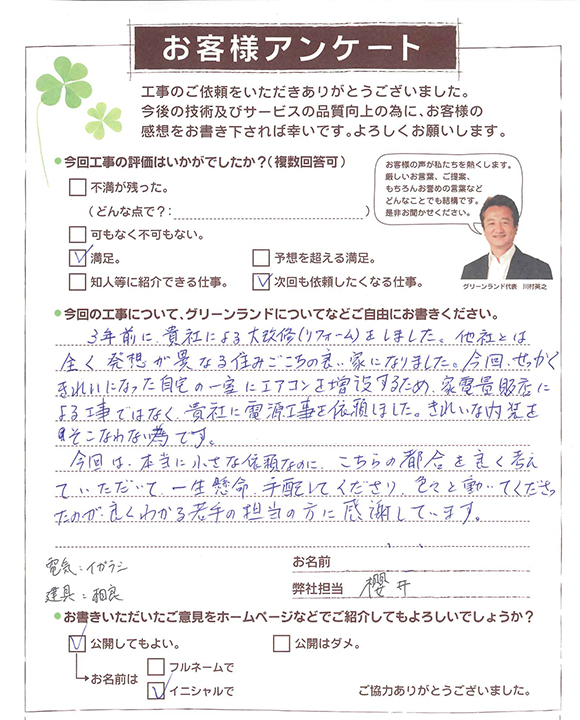 お客様アンケート
工事のご依頼をいただきありがとうございました。
今後の技術及びサービスの品質向上の為に、お客様の
感想をお書き下されば幸いです。よろしくお願いします。
今回工事の評価はいかがでしたか?(複数回答可)
不満が残った。
(どんな点で?: )
可もなく不可もない。
満足。
予想を超える満足。
知人等に紹介できる仕事。
次回も依頼したくなる仕事。
お客様の声が私たちを熱くします。
厳しいお言葉、ご提案、
もちろんお誉めの言葉など
どんなことでも結構です。
是非お聞かせください。
グリーンランド代表 川村英之
今回の工事について、グリーンランドについてなどご自由にお書きください。
3年前に、貴社による大改修(リフォーム)をしました。他社とは
全く発想が異なる住みごこちの良い家になりました。今回、せっかく
きれいになった自宅の一室にエアコンを増設するため、家電量販店に
よる工事ではなく、貴社に電源工事を依頼しました。きれいな内装を
そこなわない為です。
今回は、本当に小さな依頼なのに、こちらの都合を良く考え
ていただいて、一生懸命、手配してくださり、色々と動いてくださっ
たのが、良くわかる若手の担当の方に感謝しています。
電気:イガラシ
建具:相良
お名前
弊社担当 櫻井
お書きいただいたご意見をホームページなどでご紹介してもよろしいでしょうか?
公開してもよい。
公開はダメ。
お名前は
フルネームで
イニシャルで
ご協力ありがとうございました。